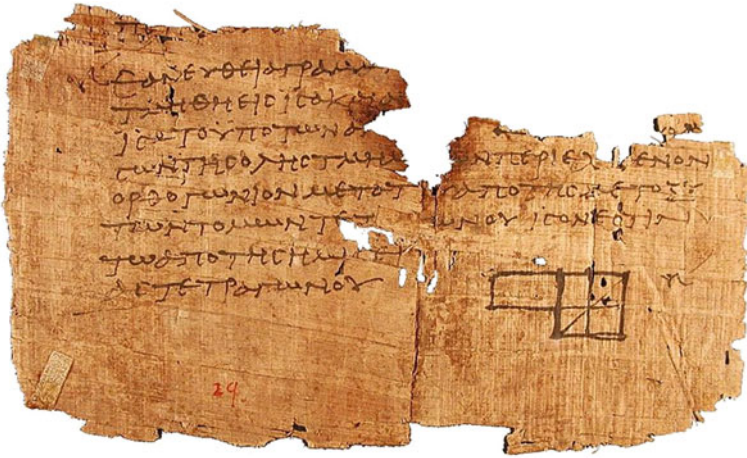 ΕΑΝ ΕΥΘΕΙΑ ΓΡΑΜ
ΤΜΗΘΗ ΕΙϹ ΙϹΑ ΚΑΙ Α
ΙϹΑ ΤΟ ΥΠΟ ΤΩΝ Α
ϹΩΝ ΤΗϹ ΟΛΗϹ ΤΜΗΜ ΩΝ ΠΕΡΙΕΧ ΜΕΝΟΝ
ΟΡΘΟΓΩΝΙΟΝ ΜΕΤΑ Τ ΑΠΟ ΤΗϹ ΜΕΤΟΞΥ
ΤΩΝ ΤΟΜΩΝ ΤΕΤ ΩΝΟΥ ΙϹΟΝ ΕϹΤΙΝ
ΤΩ ΑΠΟ ΤΗϹ ΗΜΙϹΕΙ
ΑϹ ΤΕΤΡΑΓΩΝΟΥ
24